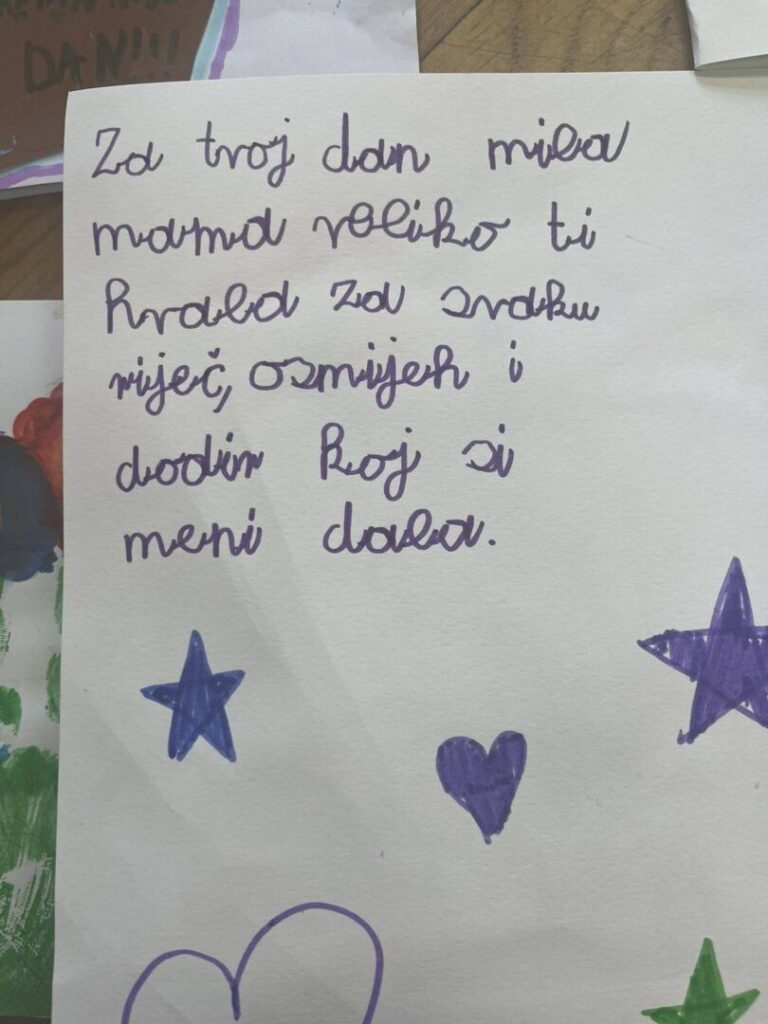 DAN!!!
Za tvoj dan mila
mama veliko ti
hvala za svaku
riječ, osmijeh i
dodir koj si
meni dala.